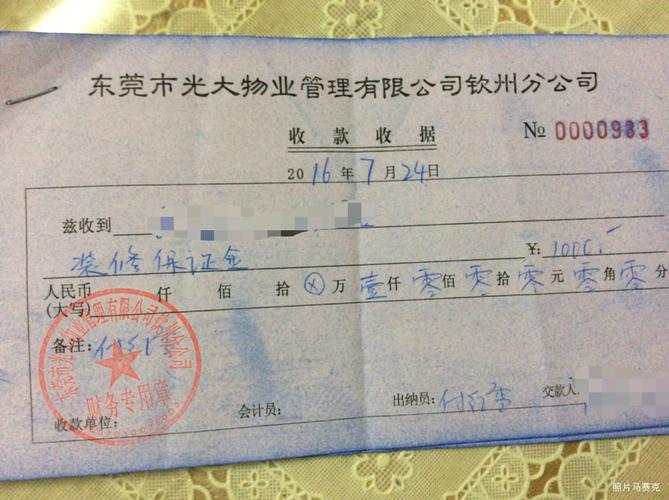 东莞市光大物业管理有限公司钦州分公司
收款收据 № 0000983
2016年7月24日
兹收到
装修保证金 ¥: 1000.-
人民币(大写) 仟 佰 拾 ⓧ万 壹仟 零佰 零拾 零元 零角 零分
备注:
东莞市光大物业管理有限公司钦州分公司
财务专用章
收款单位: 会计员: 出纳员: 交款人:
照片马赛克